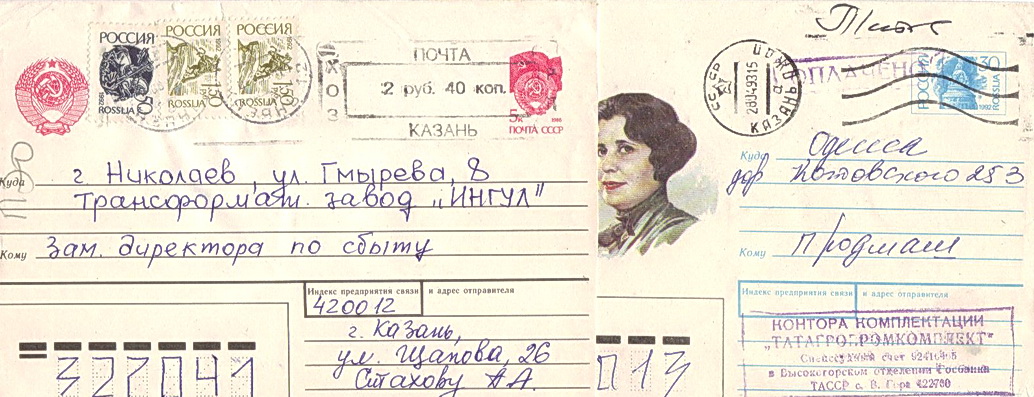 РОССИЯ
50
1992
ROSSIJA
РОССИЯ
1.50
1992
ROSSIJA
РОССИЯ
1.50
1992
ROSSIJA
ПОЧТА
2 руб. 40 коп.
КАЗАНЬ
5к
1988
ПОЧТА СССР
Куда
г. Николаев, ул. Гмырева, 8
Трансформат. завод „ИНГУЛ"
Кому
Зам. директора по сбыту
Индекс предприятия связи и адрес отправителя
420012
г. Казань,
ул. Щапова, 26
Стахову А.А.
327041
СССР
28049315
КАЗАНЬ
ОПЛАЧЕНО
РОССИЯ
30
1992
ROSSIJA
Куда
Одесса
дор Котовского 253
Кому
Продмаш
Индекс предприятия связи и адрес отправителя
КОНТОРА КОМПЛЕКТАЦИИ
"ТАТАГРОПРОМКОМПЛЕКТ"
счет
в Высокогорском отделении Госбанка
ТАССР с. В. Гора 422700
013